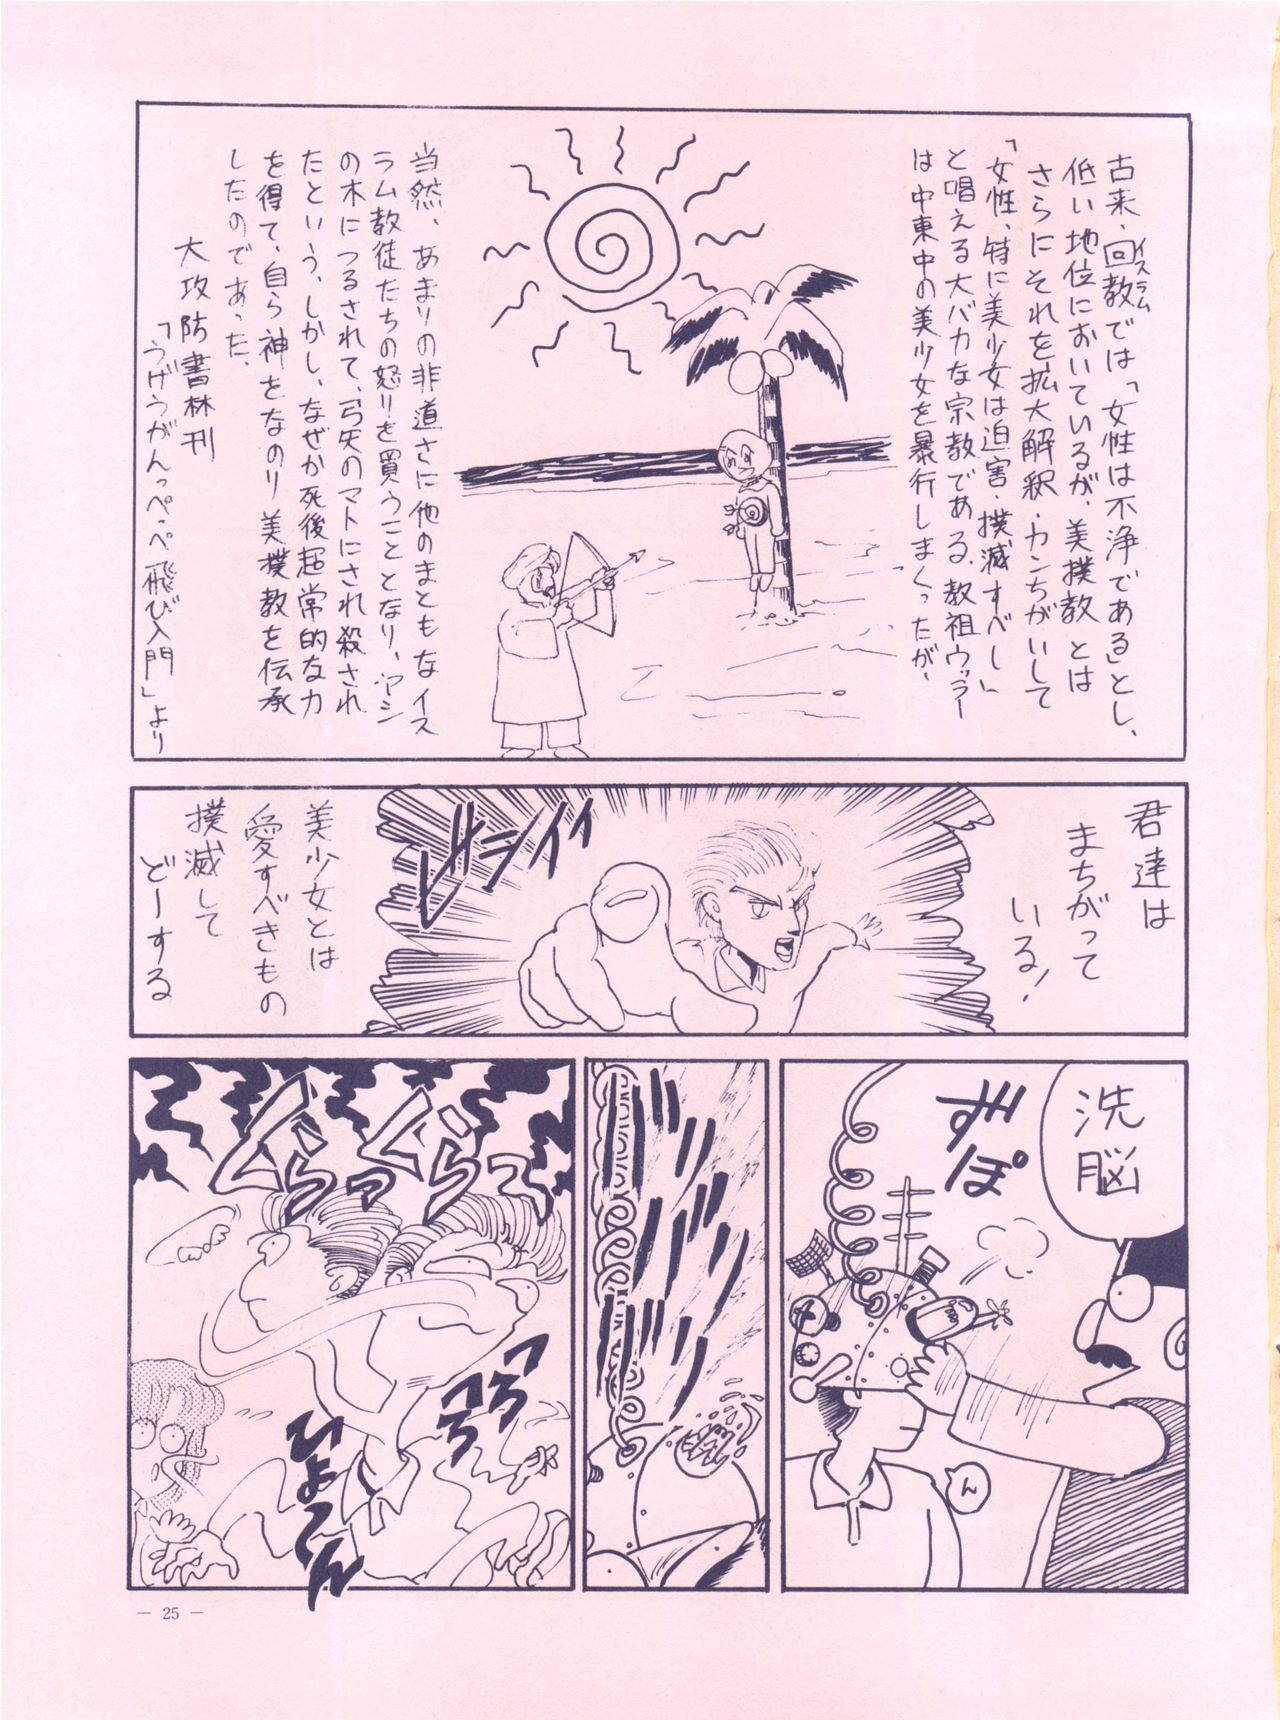 古来、回教では「女性は不浄である」とし、
イスラム
低い地位においているが、美撲教とは
さらにそれを拡大解釈・カンちがいして
「女性、特に美少女は迫害・撲滅すべし」
と唱える大バカな宗教である。教祖ウッラー
は中東中の美少女を暴行しまくったが、
当然、あまりの非道さに他のまともなイス
ラム教徒たちの怒りを買うこととなり、ヤシ
の木につるされて、弓矢のマトにされ殺され
たという。しかし、なぜか死後超常的な力
を得て、自ら神をなのり美撲教を伝承
したのであった。
大攻防書林刊
「うげうがんっぺ・ぺ飛び入門」より
君達は
まちがって
いる!
ビシイイ
美少女とは
愛すべきもの
撲滅して
どーする
洗脳
ずぽ
ん
ババババ
ぐらっぐらっ
つろつろ
ひょっん
— 25 —